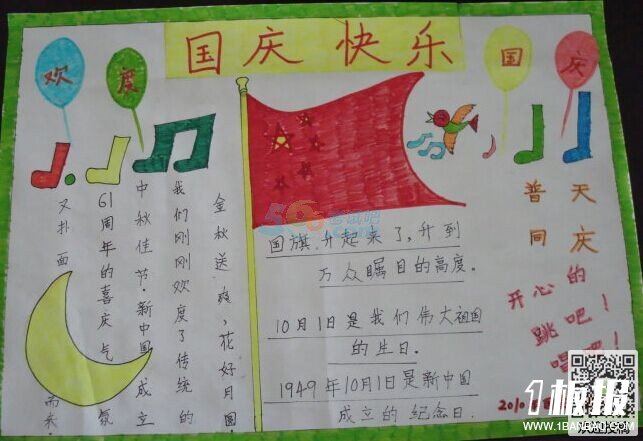 国庆 快乐
欢度
国庆
金秋送爽,花好月圆,
我们刚刚欢度了传统的
中秋佳节·新中国成立
61周年的喜庆气氛
又扑面而来.
国旗升起来了,升到
万众瞩目的高度。
10月1日是我们伟大祖国
的生日.
1949年10月1日是新中国
成立的纪念日.
普天
同庆
开心的
跳吧!
唱吧!
2010
566考试吧
1板报
WWW.1BANBAO.COM